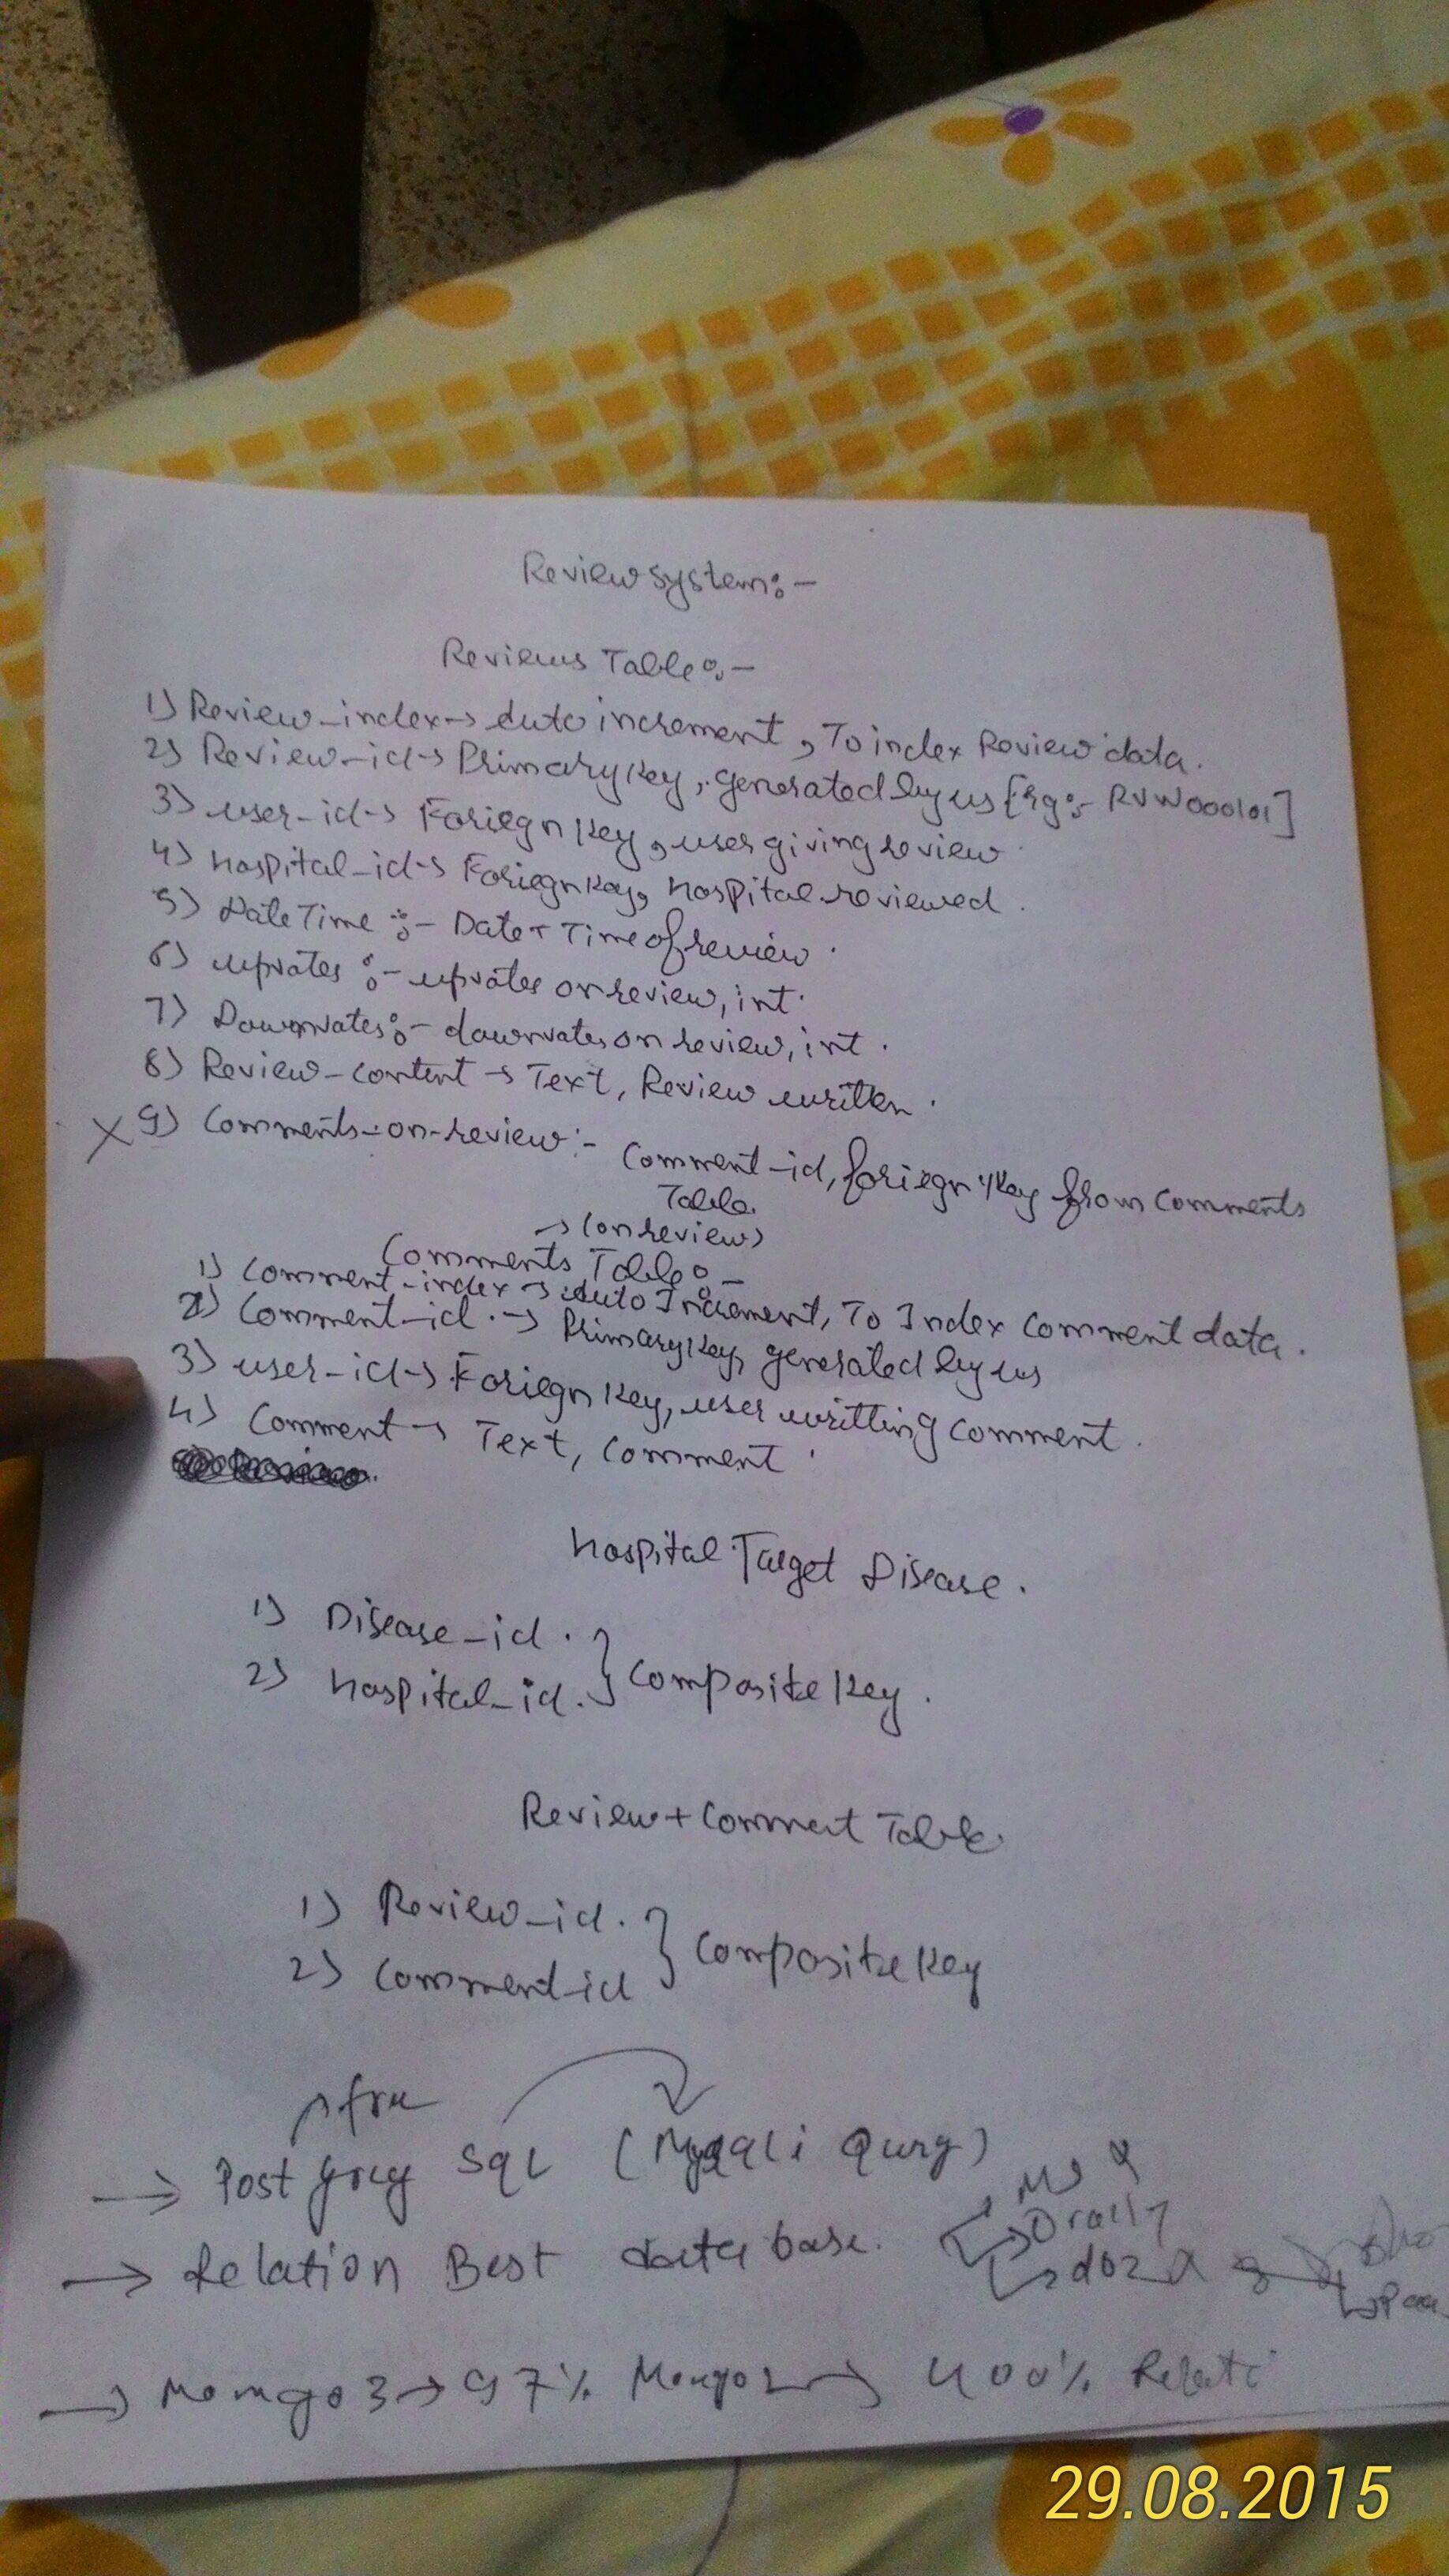 Review system:-
Reviews Table:-
1) Review-index → Auto increment, To index Review data.
2) Review-id → Primary Key, generated by us [Eg:- RVW000101]
3) user-id → Foriegn Key, user giving review
4) hospital-id → Foriegn Key, hospital reviewed.
5) Date Time :- Date + Time of review.
6) upvotes :- upvotes on review, int.
7) Downvotes:- downvotes on review, int.
8) Review-content → Text, Review written.
X 9) Comments-on-review:- Comment-id, foriegn key from comments
Table.
→ (on review)
Comments Table:-
1) Comment-index → Auto Increment, To Index comment data.
2) Comment-id. → Primary Key, generated by us
3) user-id → Foriegn Key, user writting comment.
4) Comment → Text, comment.
Hospital Target Disease.
1) Disease-id.
2) hospital-id. } Composite Key.
Review + Comment Table.
1) Review-id.
2) Comment-id } Composite Key
→ Post SQL
→ Relation Best data base.
→ Mongo 3 → 97% Mongo 2 → 400%
29.08.2015